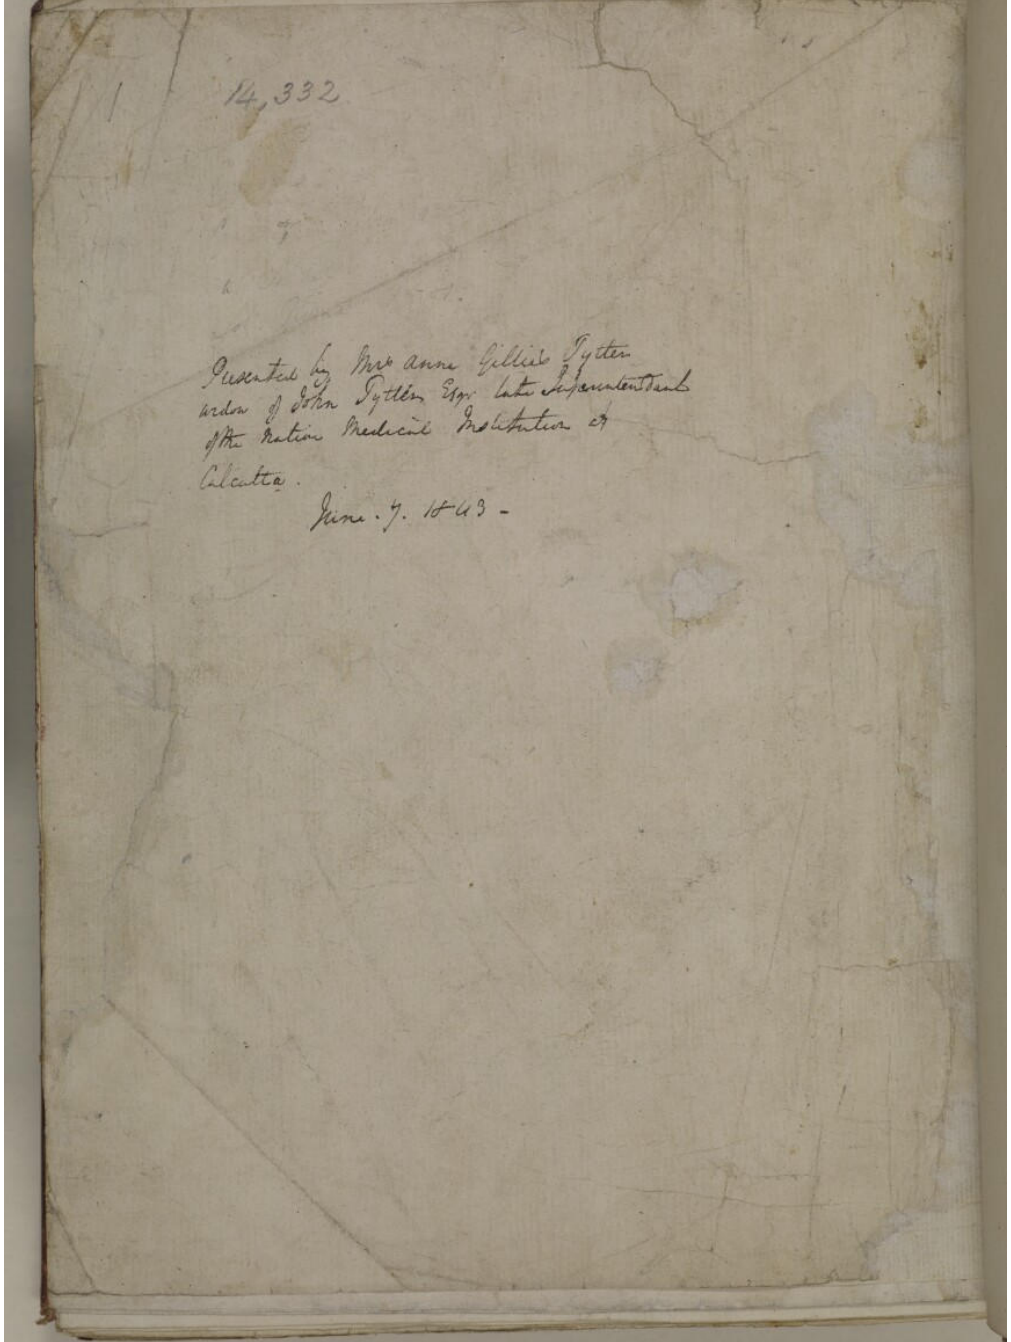 14,332
Presented by Mrs Anne Gillies Tytler
widow of John Tytler Esqr late Superintendant
of the Native Medical Institution at
Calcutta.
June. 7. 1843 -